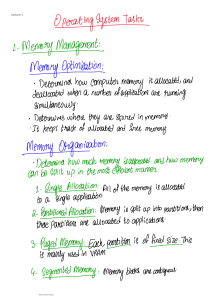 Operating System Tasks
1- Memory Management:
Memory Optimization:
· Determine how computer memory is allocated and
deallocated when a number of application are running
simultaneously.
· Determines where they are stored in memory.
· It keeps track of allocated and free memory
Memory Organization:
· Determine how much memory is allocated and how memory
can be split up in the most efficient manner.
1- Single Allocation: All of the memory is allocated
to a single application
2- Partitioned Allocation: Memory is split up into partitions, then
these partitions are allocated to applications.
3- Paged Memory: Each partition is of fixed size. This
is mainly used in VRAM
4- Segmented Memory: Memory blocks are contiguous